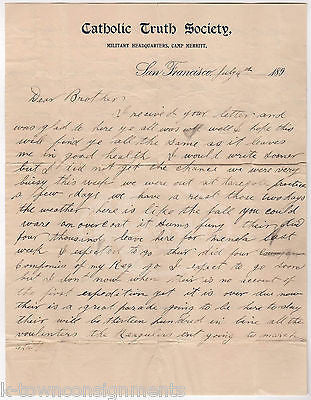 Catholic Truth Society,
MILITARY HEADQUARTERS, CAMP MERRITT,
San Francisco, July 4th 189
Dear Brother
I received your letter and
was glad to here ye all was well I hope this
will find ye all the same as it leaves
me in good health I would write sooner
but I did not get the chance we were very
bussy this week we were out at taregete practice
a few days we have a rest those two days
the weather here is like the fall you could
ware an over coat it seems funy their did
four thousand leave here for Manila last
week I expected to go their did four
Companies of my Reg go I expect to go soon
but I dont now when their is no account of
the first expedition yet it is over due now
their is a great parade going to be here to day
their will be thirteen hundred in line all the
voulenters the Regulars ant going to march
k-townconsignments